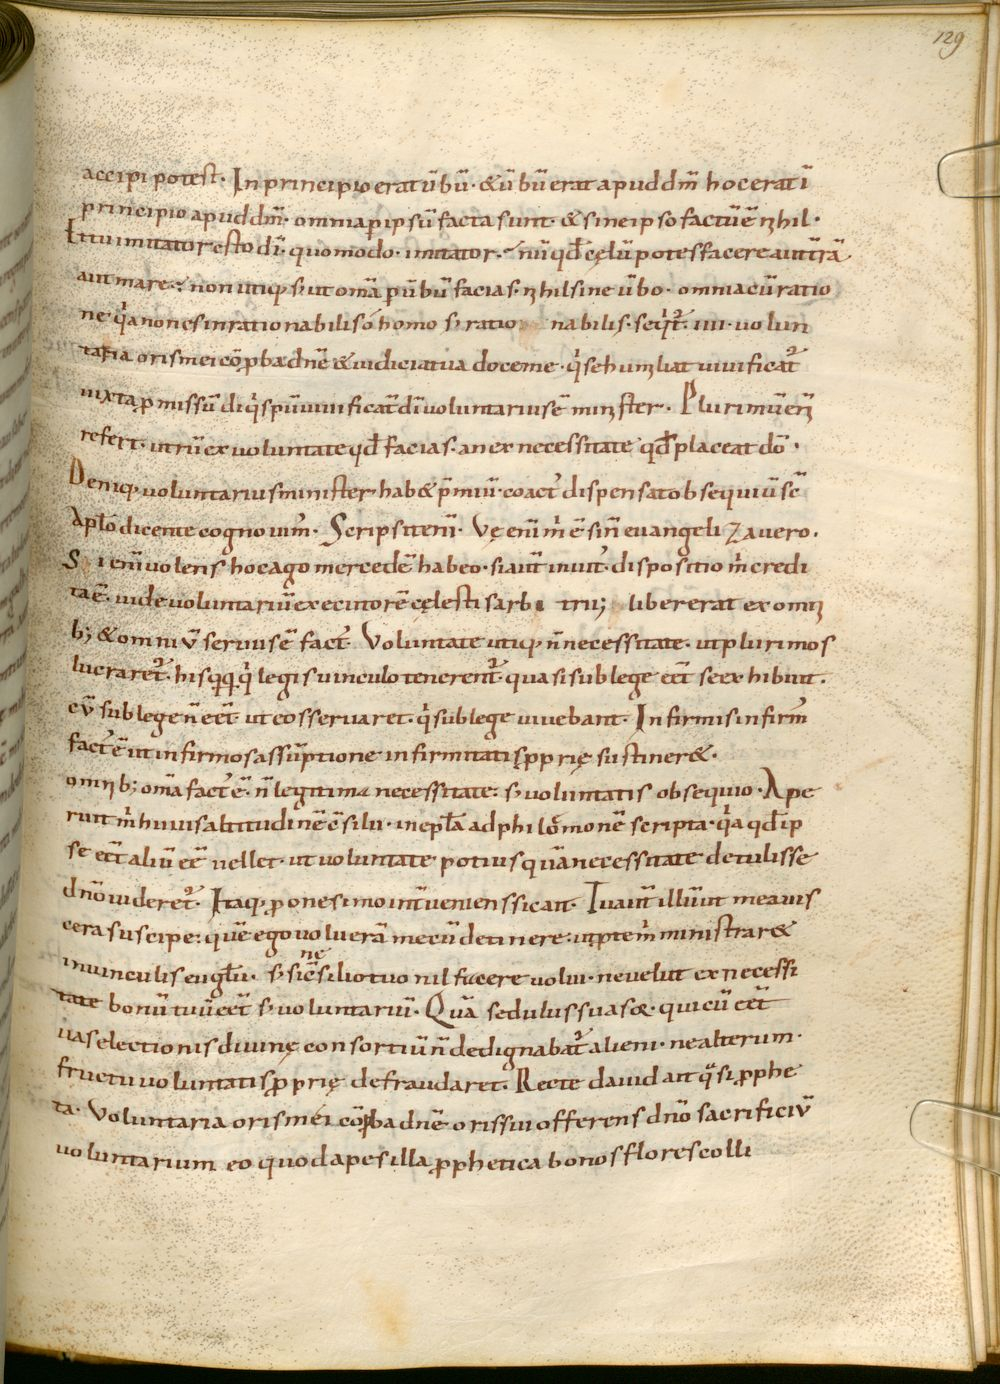 129
accipi potest. In principio erat ūbū. & ūbū erat apud dm̄ hoc erat ī
principio apud dm̄. omnia p̄ ipsū facta sunt. & sine ipso factū ē nihil.
Et tu imitator esto dī. quomodo. imitator. nūqd̄ cęlū potes facere aut t̄rā
aut mare. non utiq; s; ut om̄a p̄ ūbū facias. nihil sine ūbo. omnia cū ratio
ne. quia non es inrationabilis ó homo s; ratio nabilis. seqt̄. iiii. volun
taria oris mei cōproba dnē & iudicia tua doce me. qͥ se humiliat vivificat̄
iuxta p̄missū dī qͥ spū vivificat̄ dī voluntarius ē minister. Plurimū enī
refert. utrū ex voluntate qd̄ facias. an ex necessitate qd̄ placeat dō.
Deniq; voluntarius minister hab& p̄miū. coact᾽ dispensat obsequiū sc̄
Aplō dicente cognovim᾽. Scripsit enī. Vę enī m̄ ē si n̄ evangelizavero.
Si enī volens hoc ago mercedē habeo. si aut̄ invit᾽ dispositio m̄ credi
ta ē. vide voluntariū execūtorē cęlestis arbitrii; liber erat ex omni
b; & omniū servus ē fact᾽. Voluntate utiq; n̄ necessitate. ut plurimos
lucraret̄. his qͥ legis vinculo tenerent̄. quasi sub lege eēt se exhibuit.
cū sub lege n̄ eēt ut eos servaret. qͥ sub lege vivebant. Infirmis infirm᾽
fact᾽ ē ut infirmos assūptione infirmitatis p̄prię sustiner&.
omnib; om̄a fact᾽ ē. n̄ legitima necessitate. s; voluntatis obsequio. Ape
ruit m̄ huius altitudinē ēsilii. in epl̄a ad philomonē scripta. qͥa qd̄ ip
se eēt aliū eē vellet. ut voluntate potius quā necessitate detulisse
dnō videret̄. Itaq; p̄ onesimo int̄veniens sic ait. Tu aut̄ illū ut mea vis
cera suscipe. quē ego volueram mecū detinere. ut p̄ te m̄ ministrar&
in vinculis evgl̄ii. s; sine ēsilio tuo nil facere volui. ne velut ex necessi
tate bonū tuū eēt s; voluntariū. Quā sedulus suasor. qui cū eēt
vas electionis divinę consortiū n̄ dedignabat̄ alieni. ne alterum.
fructu voluntatis p̄prię defraudaret. Recte david ait quasi p̄phe
ta. Voluntaria oris mei cōproba dnē oris sui offerens dnō sacrificiū
voluntarium eo quod apes illa p̄phetica bonos flores colli